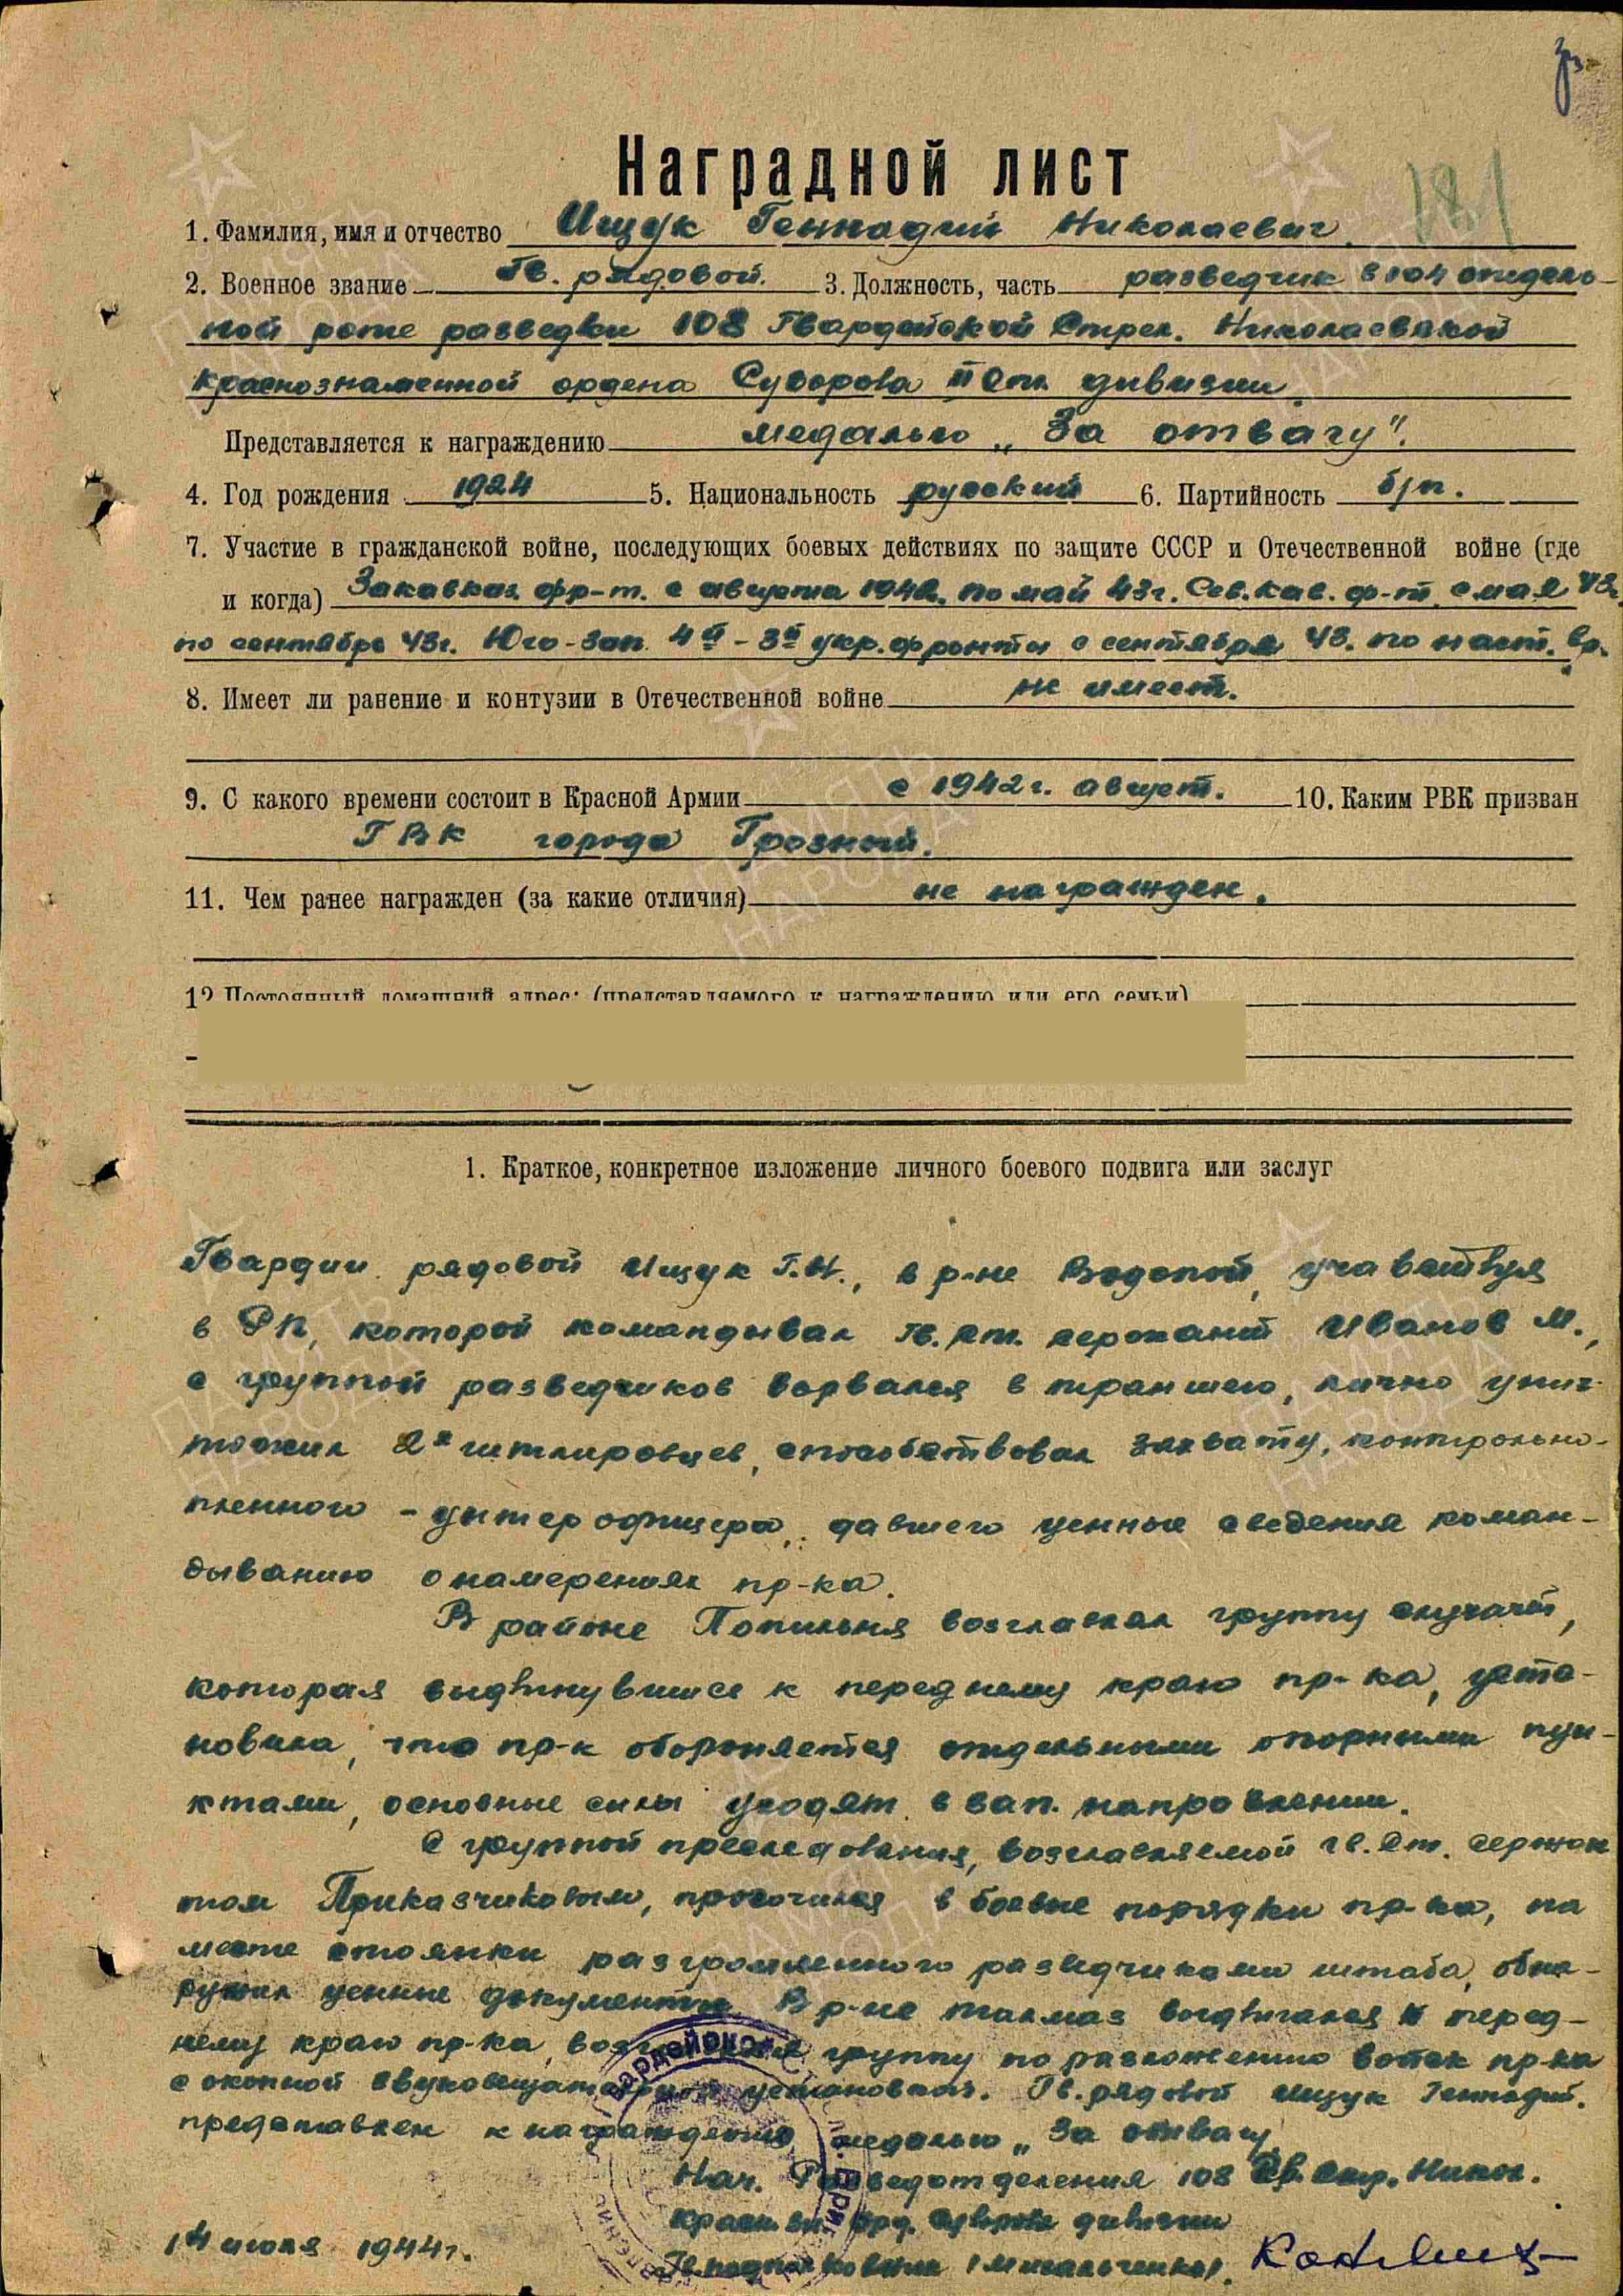 Наградной лист
181
1. Фамилия, имя и отчество Ищук Геннадий Николаевич.
2. Военное звание Гв. рядовой. 3. Должность, часть разведчик в 104 отдель-
ной роте разведки 108 Гвардейской Стрел. Николаевской
Краснознаменной ордена Суворова II Степ. дивизии.
Представляется к награждению медалью „За отвагу".
4. Год рождения 1924 5. Национальность русский 6. Партийность б/п.
7. Участие в гражданской войне, последующих боевых действиях по защите СССР и Отечественной войне (где
и когда) Закавказ. фр-т. с августа 1942. по май 43г. Сев. Кав. ф-т. с мая 43г.
по сентябрь 43г. Юго-Зап. 4й-3й укр. фронты с сентября 43. по наст. вр.
8. Имеет ли ранение и контузии в Отечественной войне не имеет.
9. С какого времени состоит в Красной Армии с 1942г. август. 10. Каким РВК призван
ГВК города Грозный.
11. Чем ранее награжден (за какие отличия) не награжден.
12 Постоянный домашний адрес: (представляемого к награждению или его семьи)
1. Краткое, конкретное изложение личного боевого подвига или заслуг
Гвардии рядовой Ищук Г.Н., в р-не Водопой, учавствуя
в РП, которой командывал гв. ст. сержант Иванов М.,
с группой разведчиков ворвался в траншею, лично унич-
тожил 2х гитлеровцев, способствовал захвату, контрольно-
пленного - унтер офицера, давшего ценные сведения коман-
дыванию о намерениях пр-ка.
В районе Попильня возглавлял группу
которая выдвинувшись к переднему краю пр-ка, уста-
новила, что пр-к обороняется отдельными опорными пун-
ктами, основные силы уходят в зап. направлении.
С группой преследования, возглавляемой гв. ст. сержан
том Приказчиковым, просочился в боевые порядки пр-ка, на
месте стоянки разгромленного разведчиками штаба, обна-
ружил ценные документы. В р-не выдвигался к перед-
нему краю пр-ка, группу по разложению войск пр-ка
с окопной звуковещательной установкой. Гв. рядовой Ищук Геннадий.
представлен к награждению медалью „За отвагу
Нач. Разведотделения 108 Гв. Стр. Никол.
Красн. зн. орд. Суворова дивизии
Гв. подполковник (Михальченко).
14 июля 1944г.
ПАМЯТЬ НАРОДА